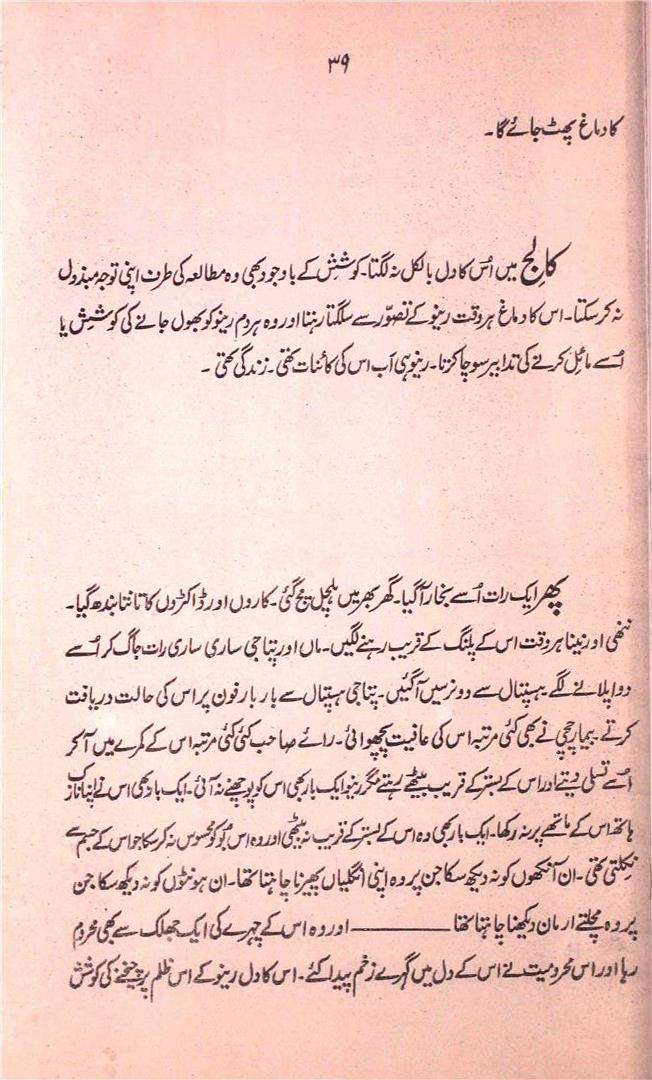 ۳۹
کا دماغ پھٹ جائے گا۔
کالج میں اُس کا دل بالکل نہ لگتا۔ کوشش کے باوجود بھی وہ مطالعہ کی طرف اپنی توجہ مبذول
نہ کر سکتا۔ اس کا دماغ ہر وقت رینو کے تصوّر سے سلگتا رہتا اور وہ ہر دم رینو کو بھول جانے کی کوشش یا
اُسے مائل کرنے کی تدابیر سوچا کرتا۔ رینو ہی اَب اس کی کائنات تھی۔ زندگی تھی۔
پھر ایک رات اُسے بخار آ گیا۔ گھر بھر میں ہلچل مچ گئی۔ کاروں اور ڈاکٹروں کا تانتا بندھ گیا۔
ننھی اور نینا ہر وقت اس کے پلنگ کے قریب رہنے لگیں۔ ماں اور پتا جی ساری ساری رات جاگ کر اُسے
دوا پلانے لگے۔ ہسپتال سے دو نرسیں آ گئیں۔ پتا جی ہسپتال سے بار بار فون پر اس کی حالت دریافت
کرتے۔ بیمار چچی نے بھی کئی مرتبہ اس کی عافیت پچھوائی۔ رائے صاحب کئی کئی مرتبہ اس کے کمرے میں آ کر
اُسے تسلی دیتے اور اس کے بستر کے قریب بیٹھے رہتے مگر رینو ایک بار بھی اس کو پوچھنے نہ آئی۔ ایک بار بھی اس نے اپنا نازک
ہاتھ اس کے ماتھے پر نہ رکھا۔ ایک بار بھی وہ اس کے بستر کے قریب نہ بیٹھی اور وہ اس بُو کو محسوس نہ کر سکا جو اس کے جسم سے
نکلتی تھی۔ ان آنکھوں کو نہ دیکھ سکا جن پر وہ اپنی انگلیاں پھیرنا چاہتا تھا۔ ان ہونٹوں کو نہ دیکھ سکا جن
پر وہ مچلتے ارمان دیکھنا چاہتا تھا ــــــــــــ اور وہ اس کے چہرے کی ایک جھلک سے بھی محروم
رہا اور اس محرومیت نے اس کے دل میں گہرے زخم پیدا کئے۔ اس کا دل رینو کے اس ظلم پر چیخنے کی کوشش